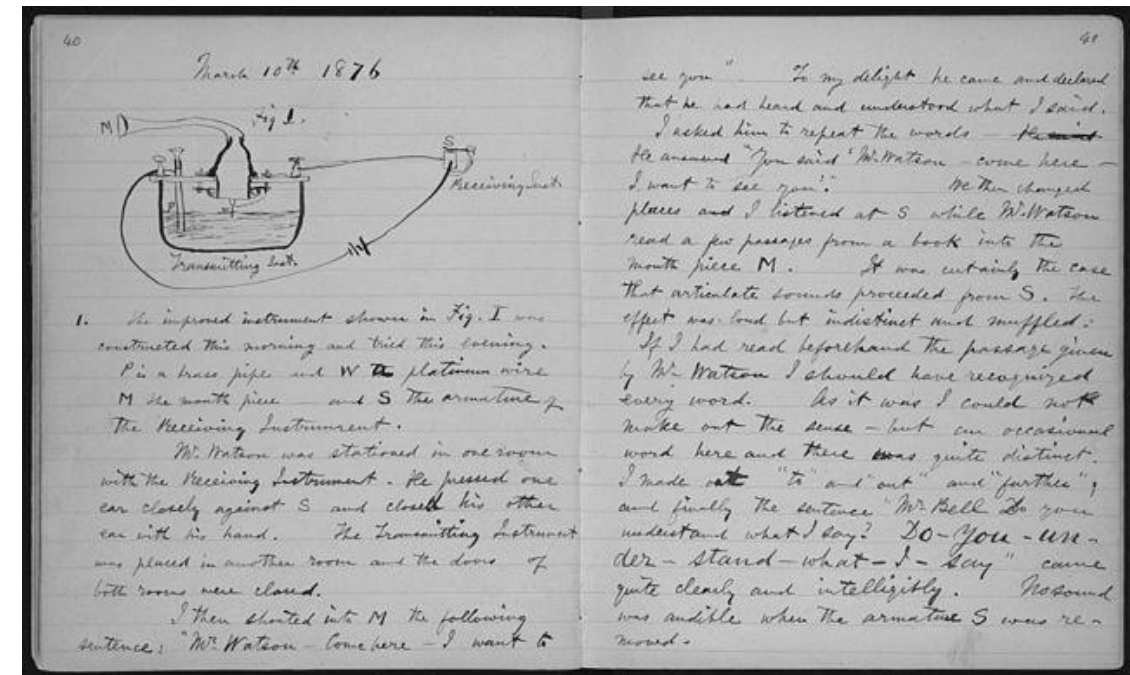 40
March 10th 1876
Fig I.
M
S
Receiving Inst.
P
W
Transmitting Inst.
1. The improved instrument shown in Fig. I was
constructed this morning and tried this evening.
P is a brass pipe and W the platinum wire
M the mouth piece and S the armature of
the Receiving Instrument.
Mr. Watson was stationed in one room
with the Receiving Instrument. He pressed one
ear closely against S and closed his other
ear with his hand. The Transmitting Instrument
was placed in another room and the doors of
both rooms were closed.
I then shouted into M the following
sentence: "Mr. Watson – Come here – I want to
41
see you". To my delight he came and declared
that he had heard and understood what I said.
I asked him to repeat the words –
He answered "You said 'Mr. Watson – come here –
I want to see you'." We then changed
places and I listened at S while Mr. Watson
read a few passages from a book into the
mouth piece M. It was certainly the case
that articulate sounds proceeded from S. The
effect was loud but indistinct and muffled.
If I had read beforehand the passage given
by Mr. Watson I should have recognized
every word. As it was I could not
make out the sense – but an occasional
word here and there was quite distinct.
I made out "to" and "out" and "further";
and finally the sentence "Mr. Bell Do you
understand what I say? Do – you – un –
der – stand – what – I – say" came
quite clearly and intelligibly. No sound
was audible when the armature S was re-
moved.